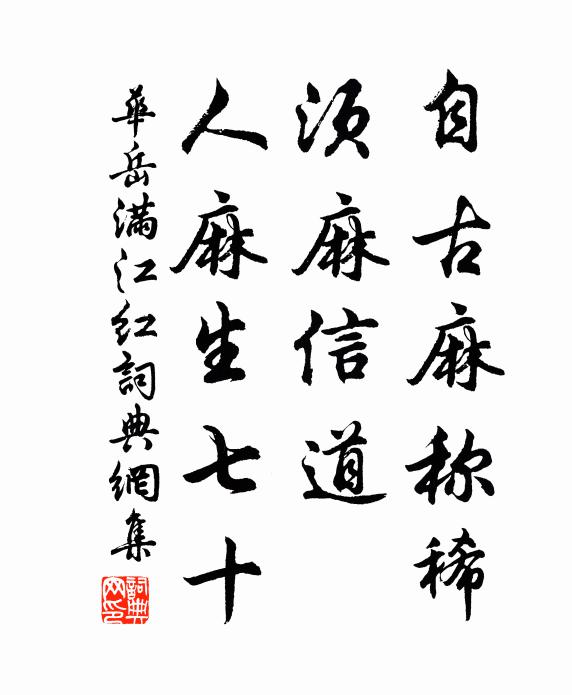 自古麻称稀
须麻信道
人麻生七十
華岳满江红詞典網集
詞典
网印